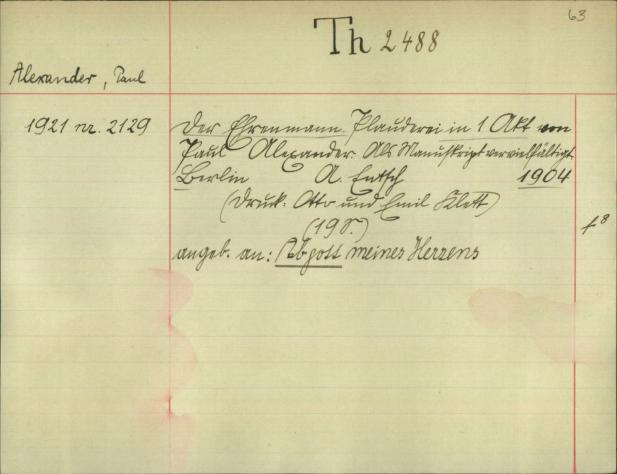 63
Th 2488
Alexander, Paul
1921 nr. 2129
Der Ehrenmann. Plauderei in 1 Akt von
Paul Alexander. Als Manuskript vervielfältigt.
Berlin A. Entsch 1904
(Druck: Otto und Emil Klett)
(19 S.)
8
angeb. an: Abgott meines Herzens